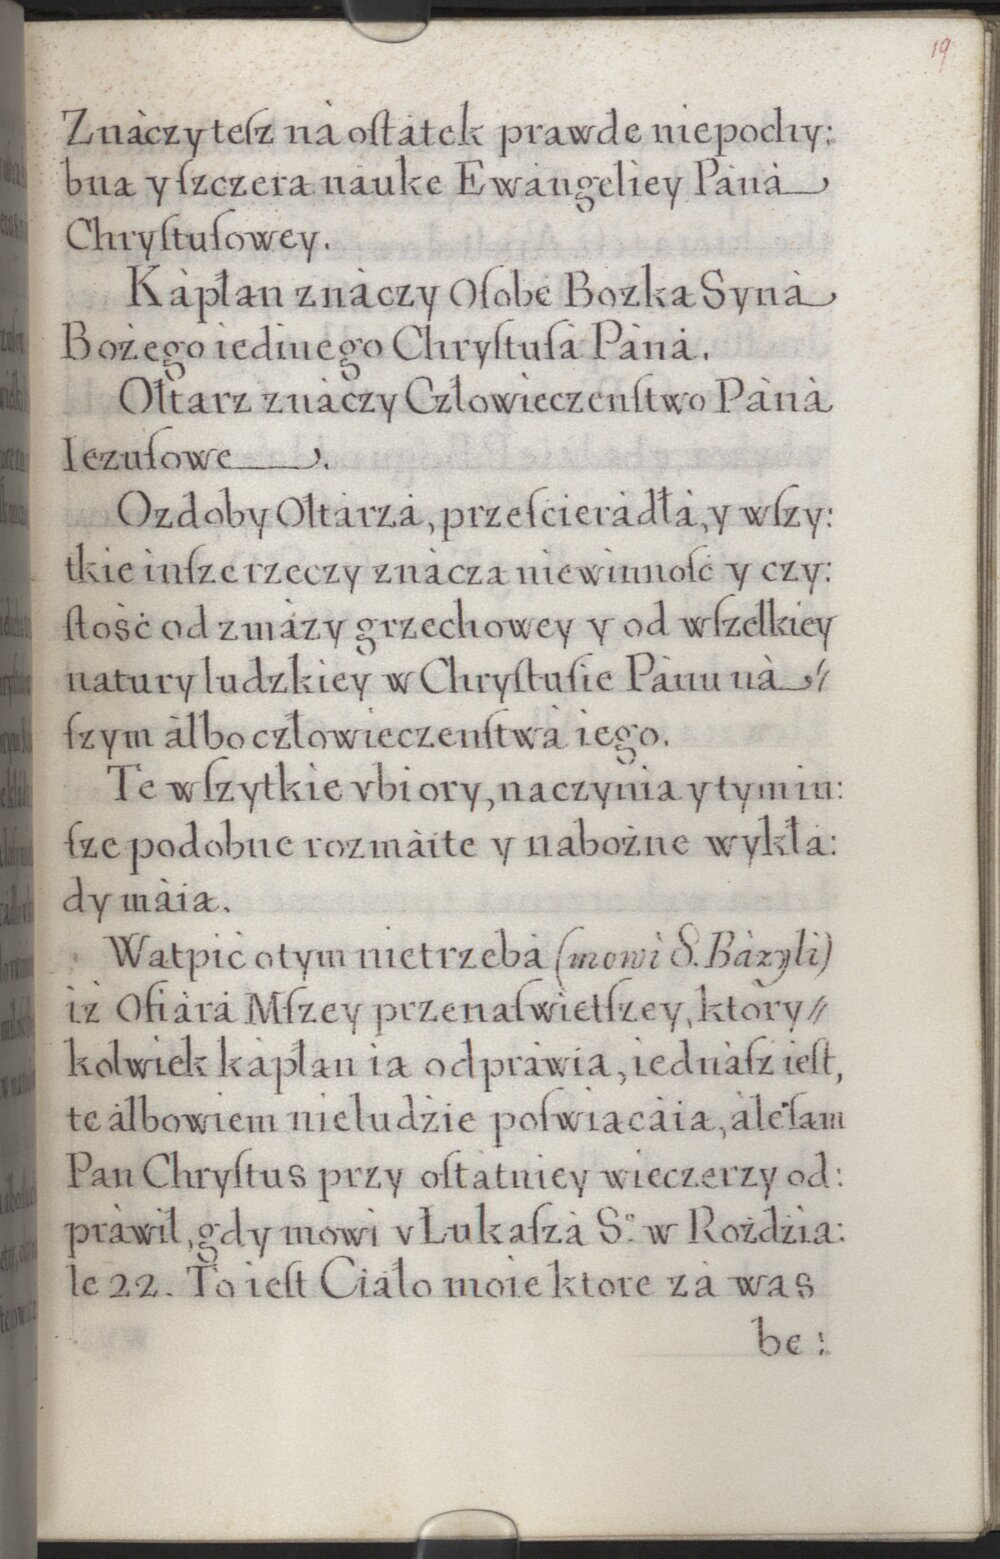 19
Znàczy teſz nà oſtàtek prawdę niepochy:
bną y ſzczerą naukę Ewàngeliey Pànà
Chryſtuſowey.
Kàpłan znàczy Oſobę Bozką Synà
Bożego iedinego Chryſtuſà Pànà.
Ołtarz znàczy Człowieczenſtwo Pànà
Iezuſowe.
Ozdoby Ołtàrzà, przeſcieràdłà, y wſzy:
tkie inſze rzeczy znàczą niewinnoſć y czy:
ſtość od zmàzy grzechowey y od wſzelkiey
natury ludzkiey w Chryſtuſie Pànu nà⸗
ſzym àlbo człowieczenſtwà iego.
Te wſzytkie vbiory, naczynia y tym in:
ſze podobne rozmàite y nabożne wykłà:
dy màią.
Wątpić o tym nietrzebà (mowi S. Bàzyli)
iż Ofiàrà Mſzey przenaſwiętſzey, ktory⸗
kolwiek kàpłan ią odpràwia, iednàſz ieſt,
tę àlbowiem nie ludźie poſwiącàią, àle ſam
Pan Chryſtus przy oſtatniey wieczerzy od:
pràwił, gdy mowi v Łukaſzà S.º w Rożdżia:
le 22. To ieſt Ciàło moie ktore zà was
bę: